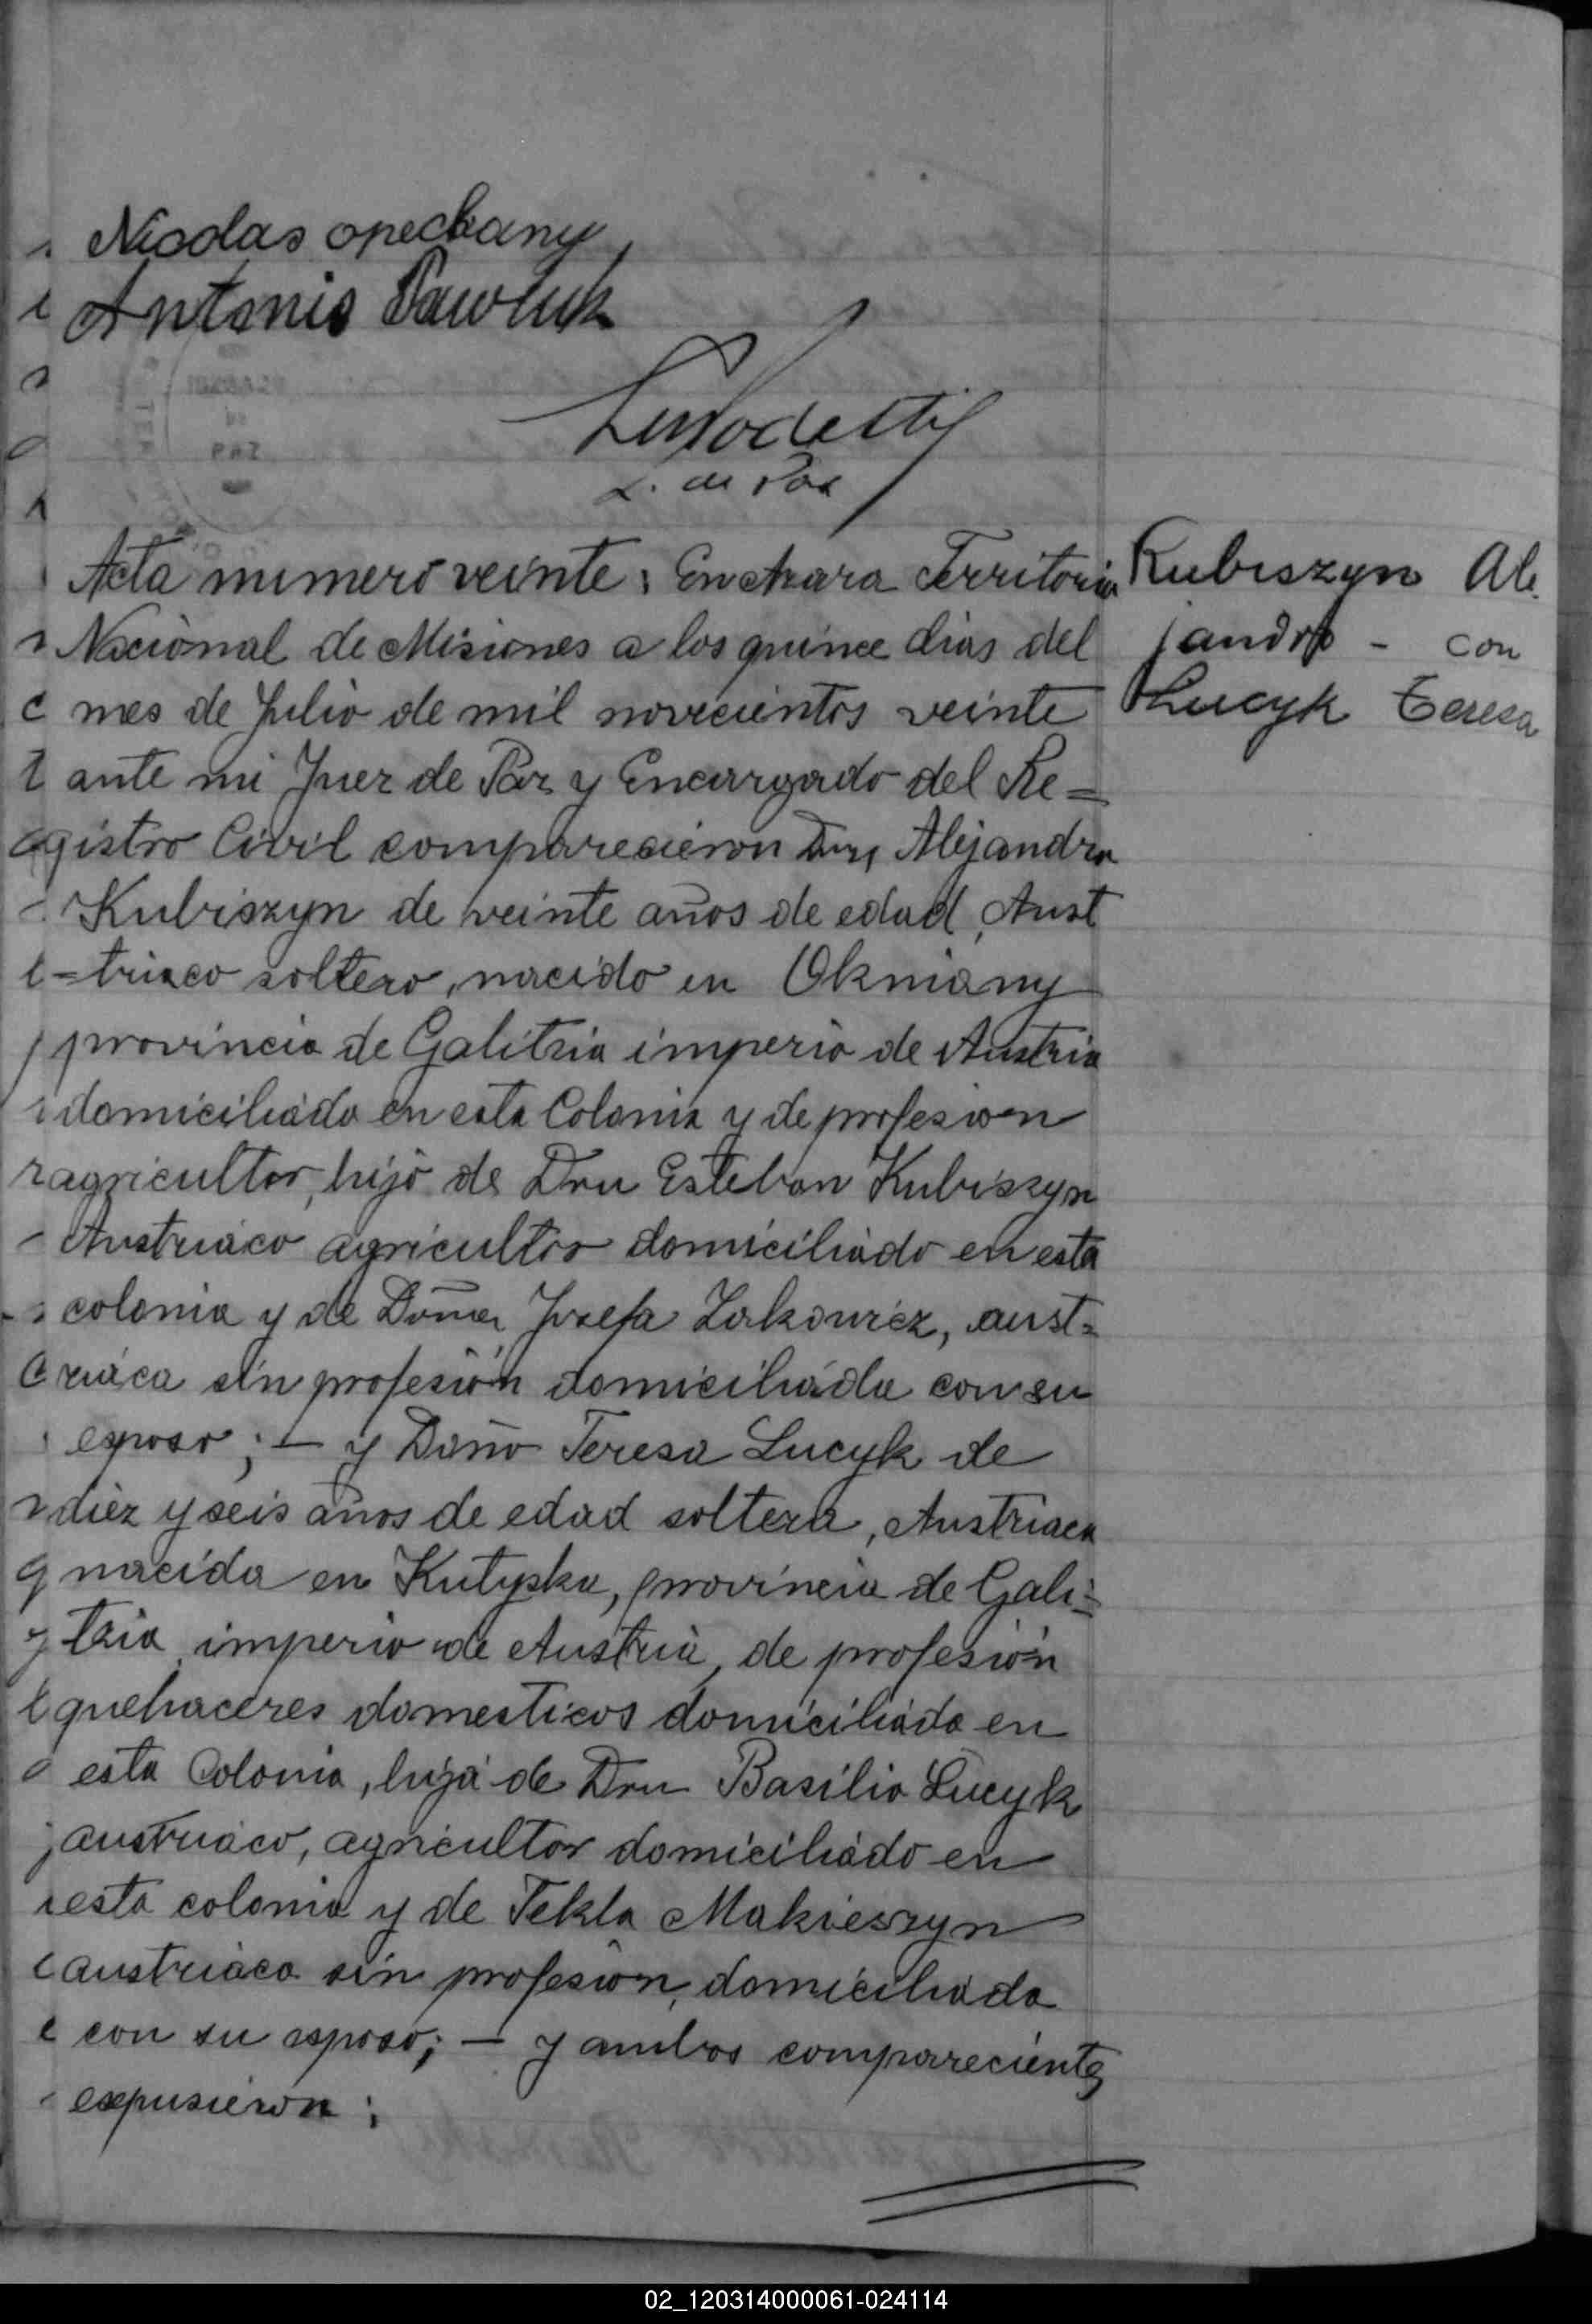 Nicolas opechany
Antonio Pawluk
JUZGADO
DE
PAZ
J. de Paz
Acta número veinte: En Azara Territorio
Nacional de Misiones a los quince dias del
mes de Julio de mil novecientos veinte
ante mi Juez de Paz y Encargado del Re=
gistro Civil comparecieron Don Alejandro
Kubiszyn de veinte años de edad, Aust
=triaco soltero, nacido en Okniany
provincia de Galitzia imperio de Austria
domiciliado en esta Colonia y de profesion
agricultor, hijo de Don Esteban Kubiszyn
Austriaco agricultor domiciliado en esta
colonia y de Doña Josefa Zakowicz, aust=
riaca sin profesión domiciliada con su
esposo; — y Doño Teresa Lucyk de
diez y seis años de edad soltera, Austriaca
nacida en Kutyska, provincia de Gali=
tzia imperio de Austria, de profesión
quehaceres domesticos domiciliada en
esta Colonia, hija de Don Basilio Lucyk
austriaco, agricultor domiciliado en
esta colonia y de Tekla Makieszyn
austriaca sin profesion, domiciliada
con su esposo; — y ambos comparecientes
expusieron:
Kubiszyn Ale
jandro - con
Lucyk Teresa
02_120314000061-024114